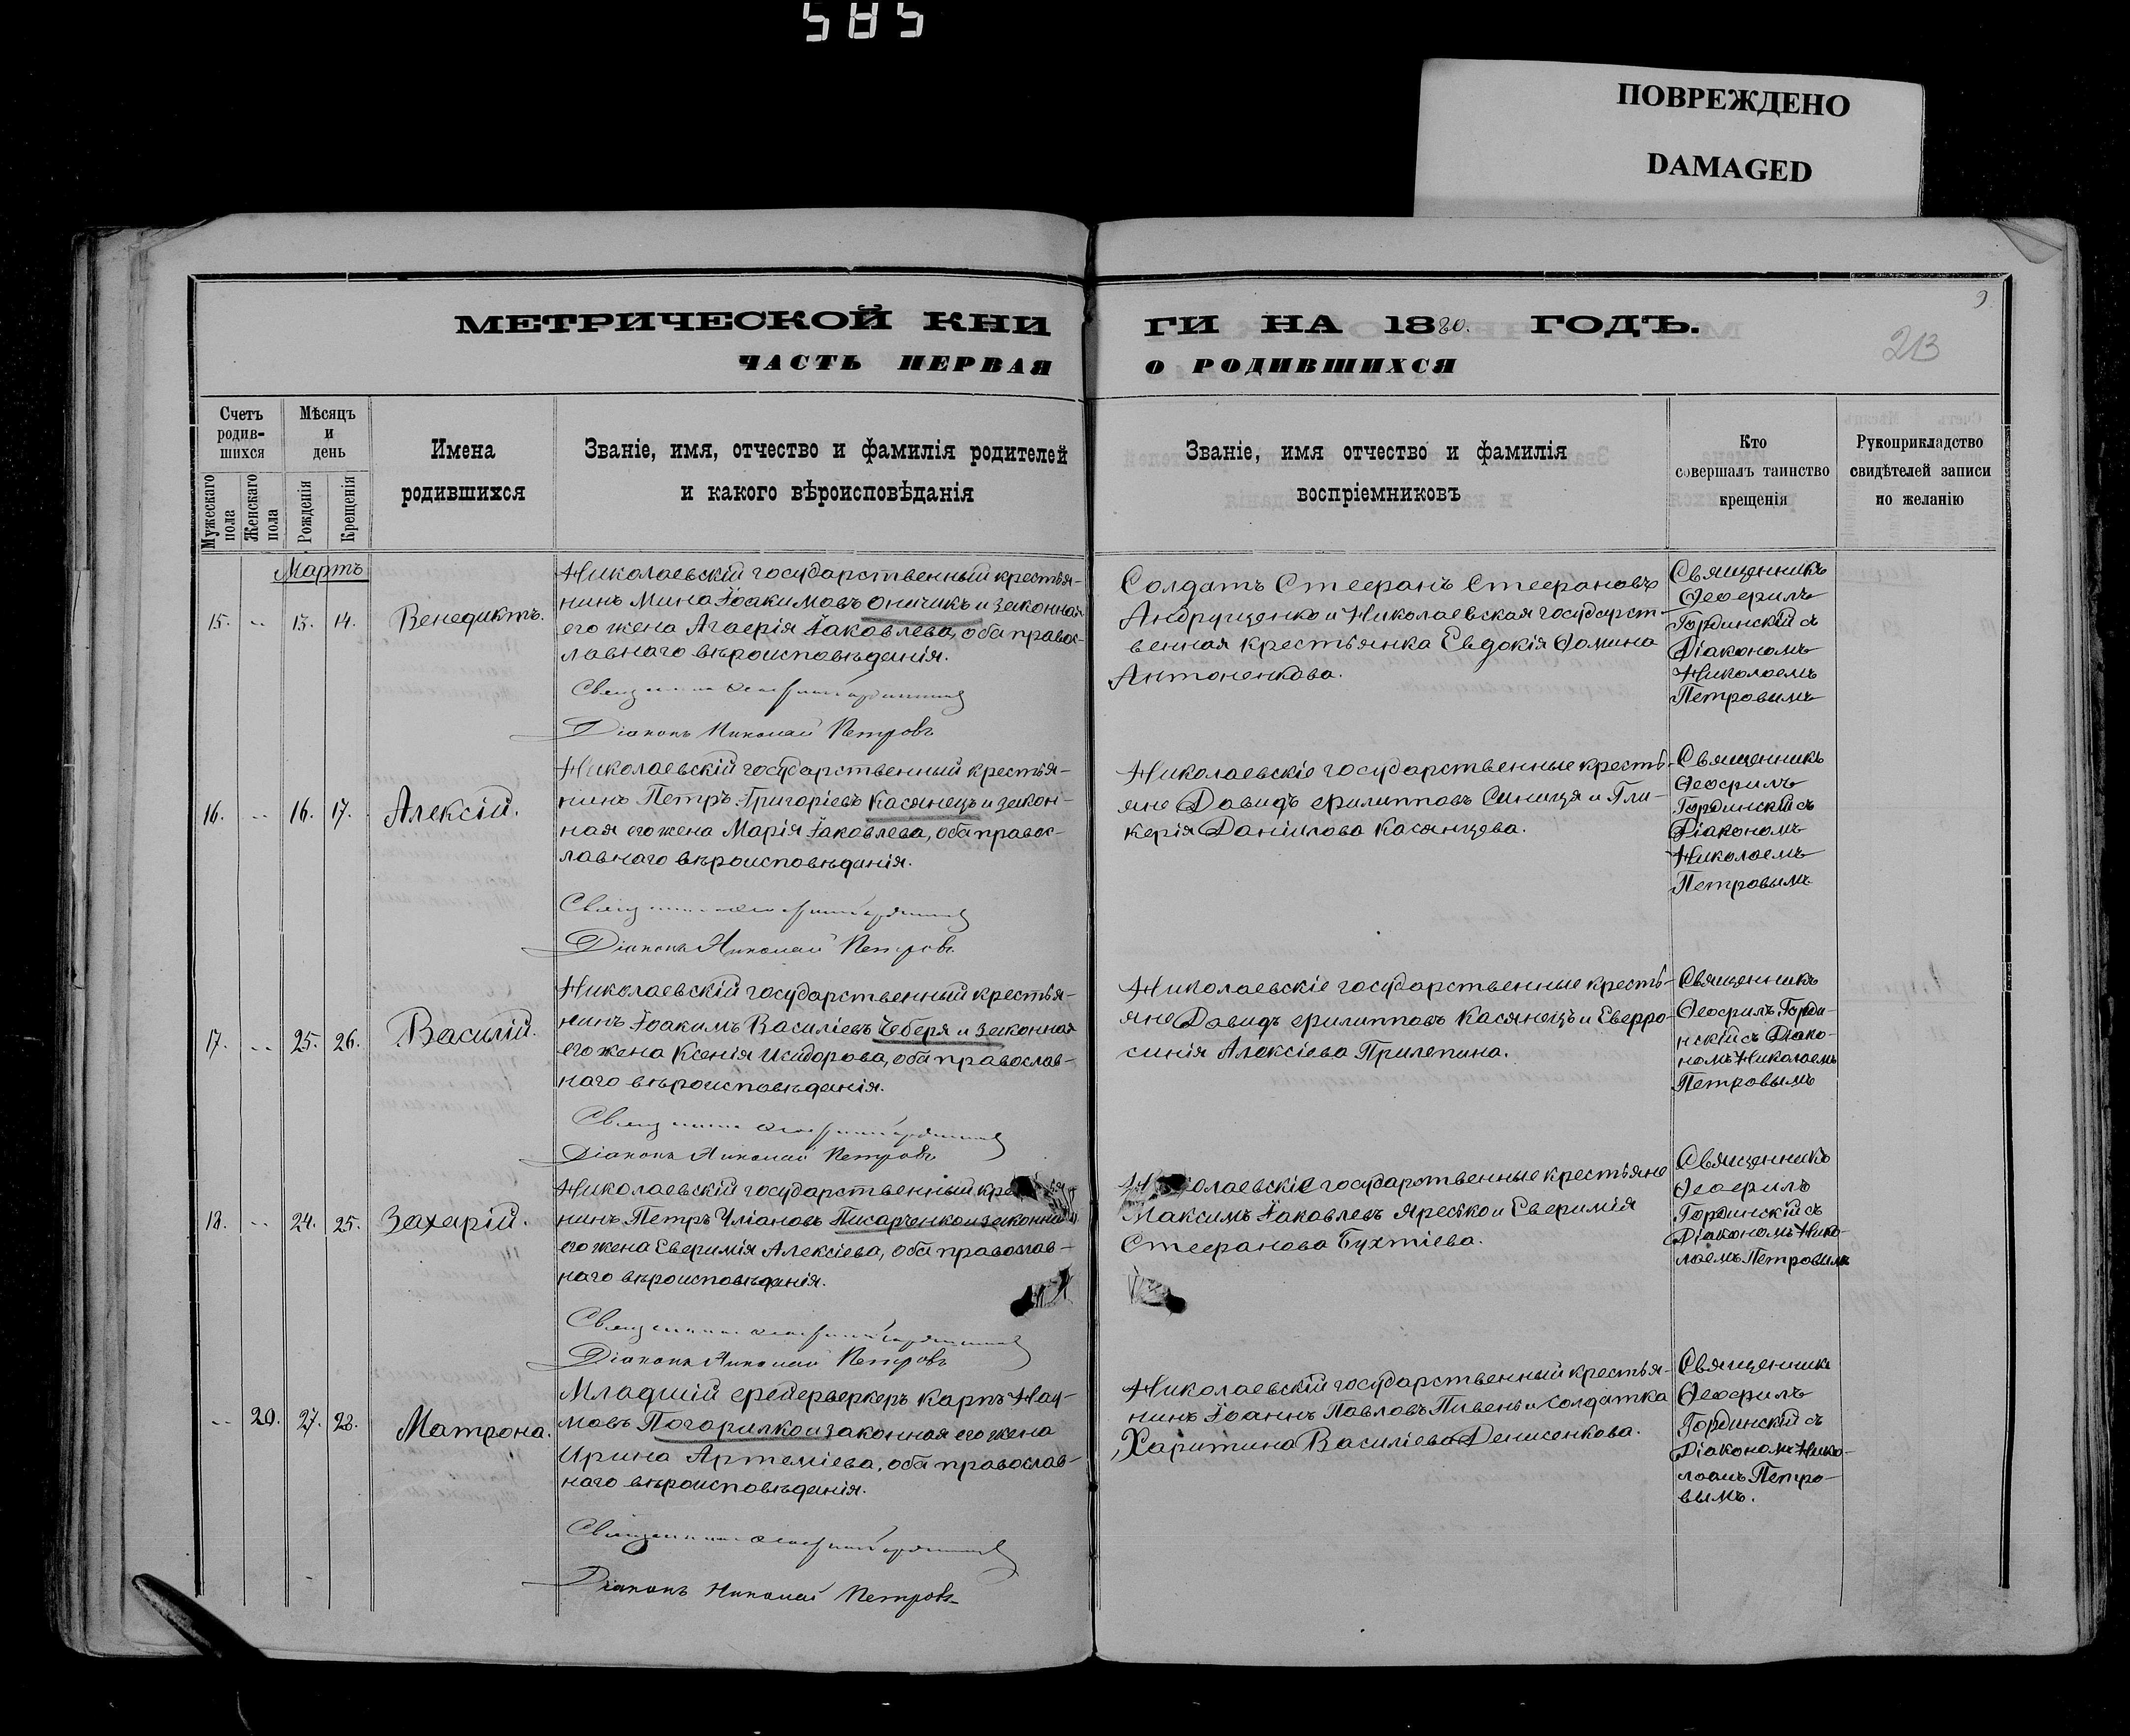 585
ПОВРЕЖДЕНО
DAMAGED
МЕТРИЧЕСКОЙ КНИ
ГИ НА 1880. ГОДЪ.
ЧАСТЬ ПЕРВАЯ
О РОДИВШИХСЯ
9
213
Счетъ родив-шихся
Мужескаго пола
Женскаго пола
Мѣсяцъ и день
Рожденія
Крещенія
Имена
родившихся
Званіе, имя, отчество и фамилія родителей
и какого вѣроисповѣданія
Званіе, имя отчество и фамилія
воспріемниковъ
Кто
совершалъ таинство
крещенія
Рукоприкладство
свидѣтелей записи
по желанію
Мартъ
15. -- 13. 14. Венедиктъ.
Николаевскій государственный крестья-
нинъ Мина Іоакимовъ Оничикъ и законная
его жена Агаѳія Іаковлева, оба правос-
лавнаго вѣроисповѣданія.
Діаконъ Николай Петровъ
Солдатъ Стефанъ Стефановъ
Андрущенко и Николаевская государст-
венная крестьянка Евдокія Ѳомина
Антоненкова.
Священникъ
Ѳеофилъ
Гординскій съ
Діакономъ
Николаемъ
Петровымъ
16. -- 16. 17. Алексій.
Николаевскій государственный крестья-
нинъ Петръ Григоріевъ Касянецъ и закон-
ная его жена Марія Іаковлева, оба правос-
лавнаго вѣроисповѣданія.
Діаконъ Николай Петровъ
Николаевскіе государственные кресть-
яне Давидъ Филипповъ Синиця и Гли-
керія Даніилова Касянцева.
Священникъ
Ѳеофилъ
Гординскій съ
Діакономъ
Николаемъ
Петровымъ
17. -- 25. 26. Василій.
Николаевскій государственный крестья-
нинъ Іоакимъ Василіевъ Чеберя и законная
его жена Ксенія Исидорова, оба православ-
наго вѣроисповѣданія.
Діаконъ Николай Петровъ
Николаевскіе государственные кресть-
яне Давидъ Филипповъ Касянецъ и Евфро-
синія Алексіева Прилепина.
Священникъ
Ѳеофилъ Горди-
нскій съ Діако-
номъ Николаемъ
Петровымъ
18. -- 24. 25. Захарій.
Николаевскій государственный
нинъ Петръ Уліановъ Писарченко и законная
его жена Евфимія Алексіева, оба православ-
наго вѣроисповѣданія.
Діаконъ Николай Петровъ
Николаевскіе государственные крестьяне
Максимъ Іаковлевъ Яресько и Евфимія
Стефанова Бухтіева.
Священникъ
Ѳеофилъ
Гординскій съ
Діакономъ Нико-
лаемъ Петровымъ
-- 20. 27. 28. Матрона.
Младшій фейерверкеръ Карпъ Нау-
мовъ Погорилко и законная его жена
Ирина Артеміева, оба православ-
наго вѣроисповѣданія.
Діаконъ Николай Петровъ
Николаевскій государственный крестья-
нинъ Іоаннъ Павловъ Пивень и солдатка
Харитина Василіева Денисенкова.
Священникъ
Ѳеофилъ
Гординскій съ
Діакономъ Нико-
лаемъ Петро-
вымъ.